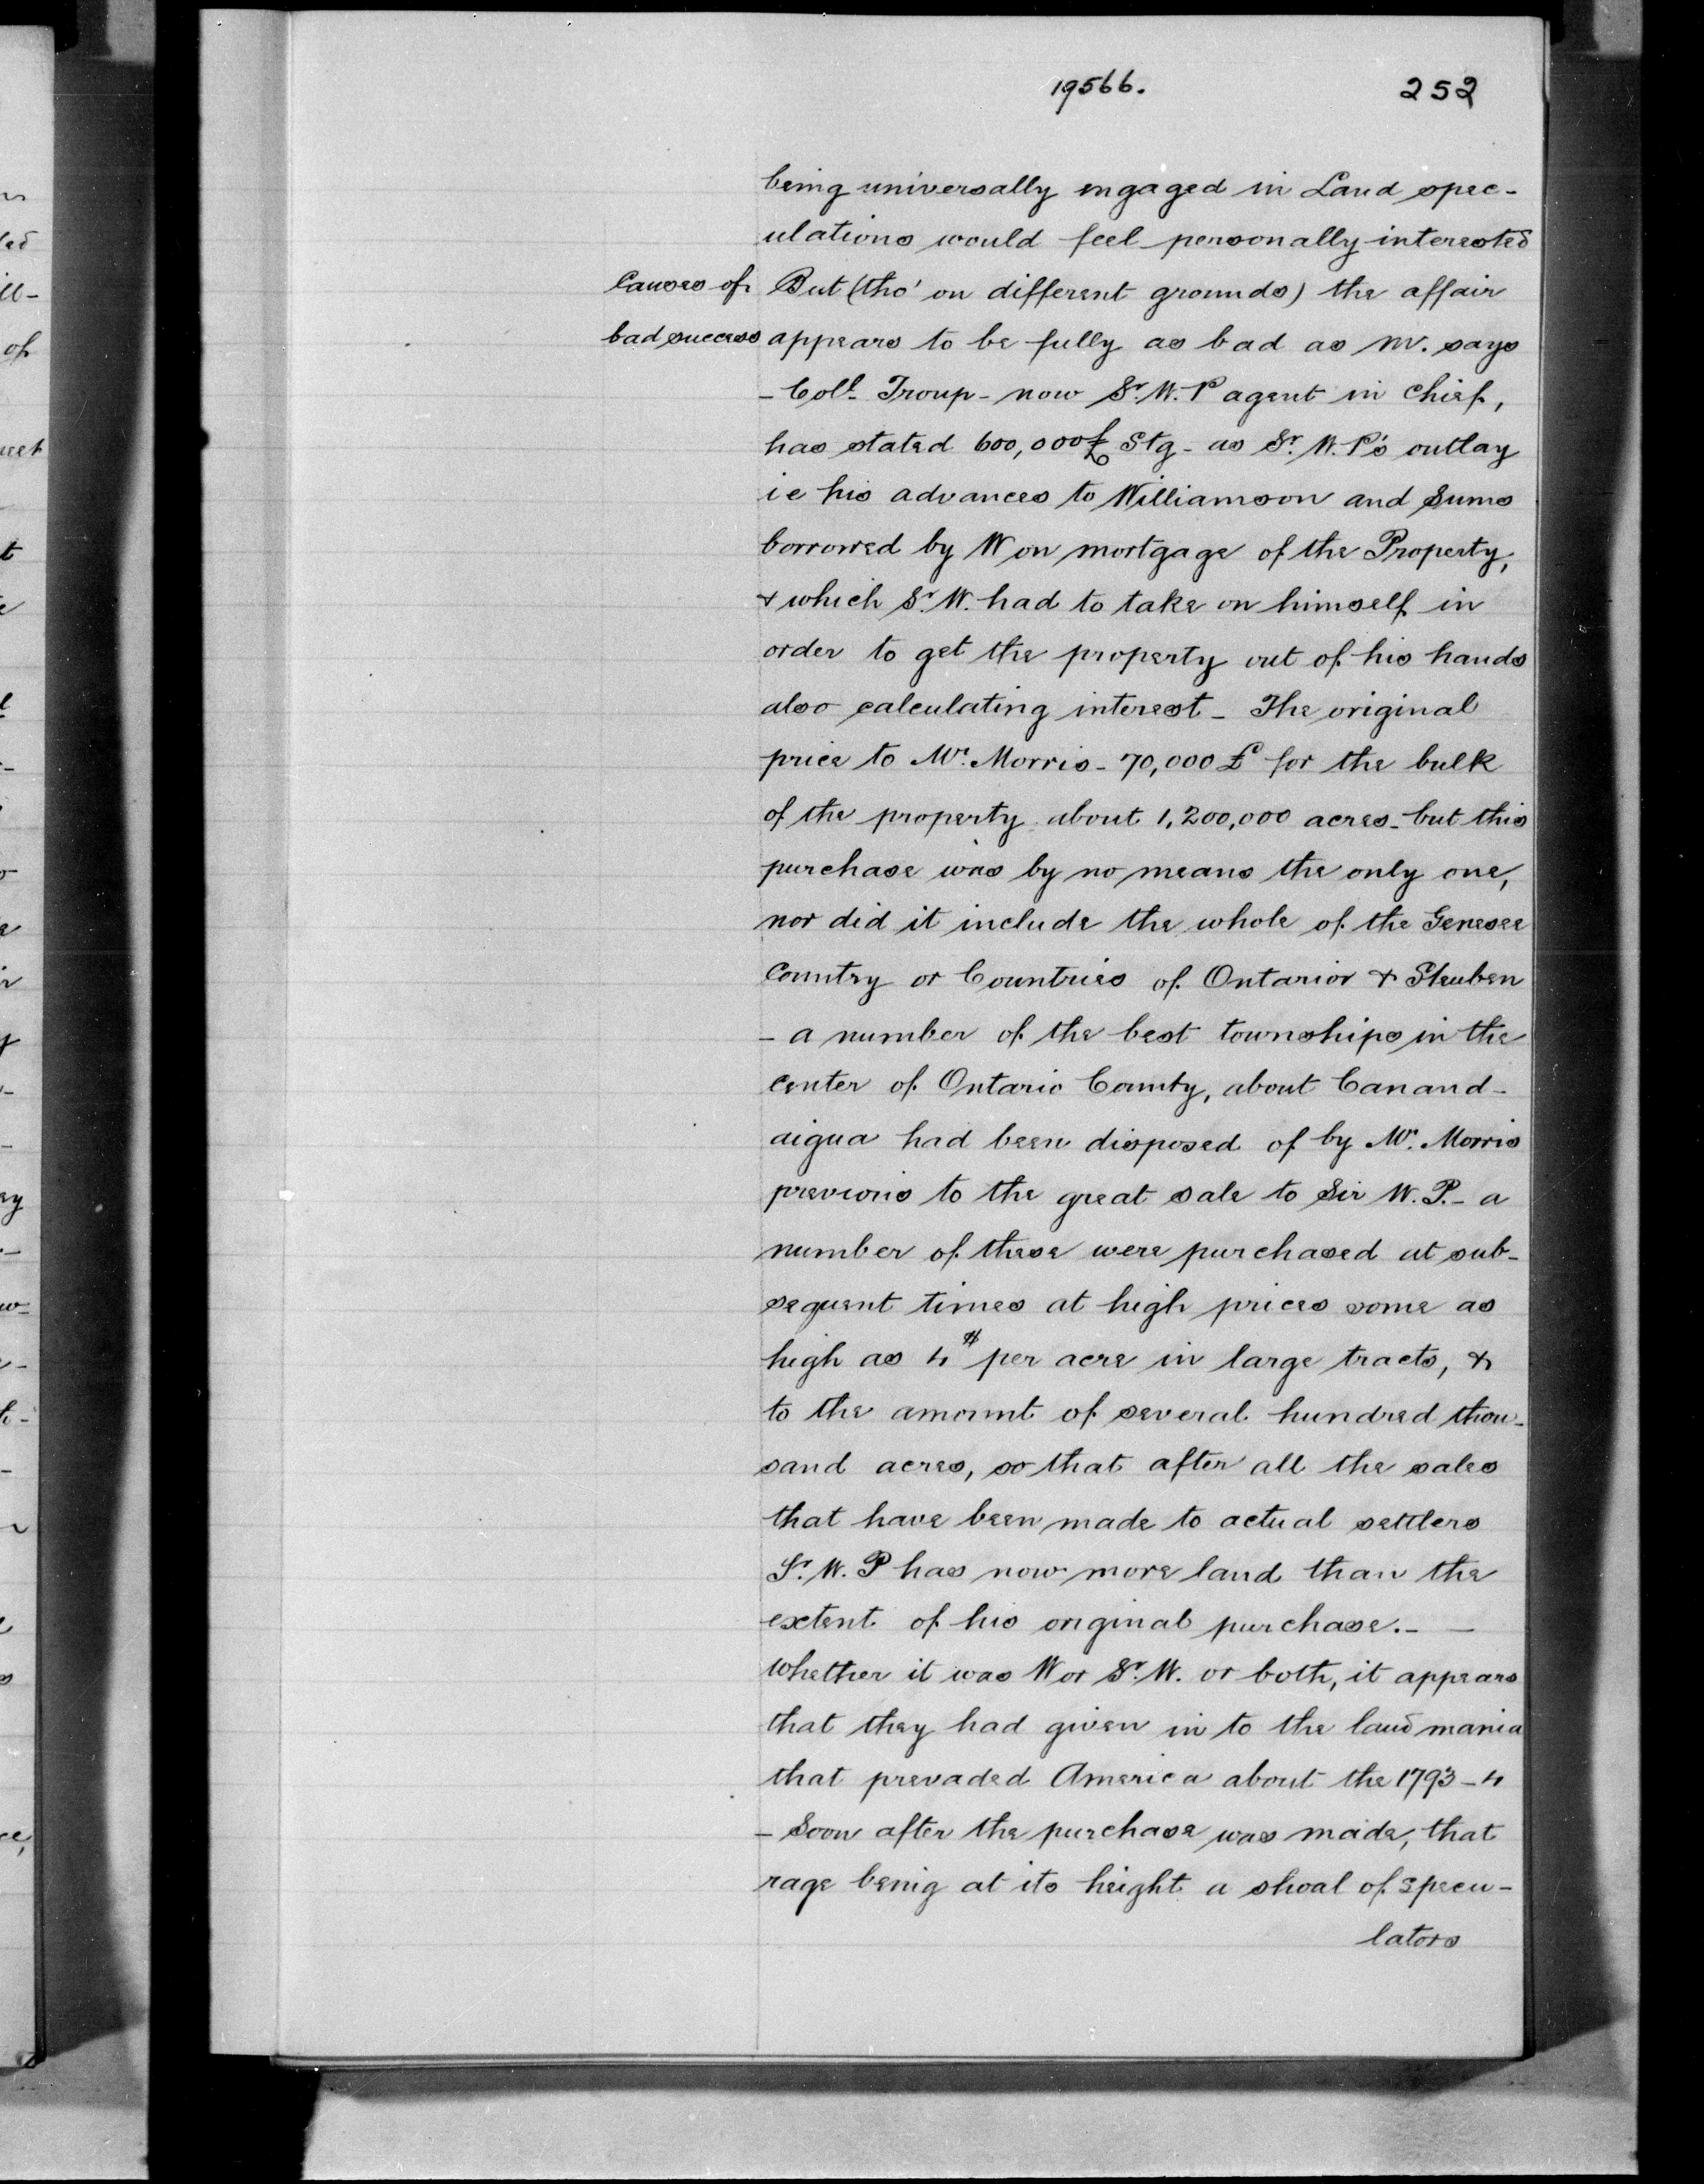 19566.
252
being universally engaged in Land spec-
ulations would feel personally interested
Causes of
bad success
But (tho' on different grounds) the affair
appears to be fully as bad as M. says
- Coll. Troup - now Sr. W. P agent in chief,
has stated 600,000£ Stg - as Sr. W. P's outlay
i e his advances to Williamson and Sums
borrowed by W on mortgage of the Property,
& which Sr. W. had to take on himself in
order to get the property out of his hands
also calculating interest - The original
price to Mr. Morris - 70,000 £ for the bulk
of the property about 1,200,000 acres - but this
purchase was by no means the only one,
nor did it include the whole of the Genesee
Country or Countries of Ontarior & Steuben
- a number of the best townships in the
center of Ontario County, about Canand-
aigua had been disposed of by Mr. Morris
previous to the great sale to Sir W. P. - a
number of these were purchased at sub-
sequent times at high prices some as
high as 4$ per acre in large tracts, &
to the amount of several hundred thou-
sand acres, so that after all the sales
that have been made to actual settlers
Sr. W. P has now more land than the
extent of his original purchase. - -
Whether it was W or Sr. W. or both, it appears
that they had given in to the land mania
that prevaded America about the 1793 - 4
- Soon after the purchase was made, that
rage being at its height a shoal of specu-
lators